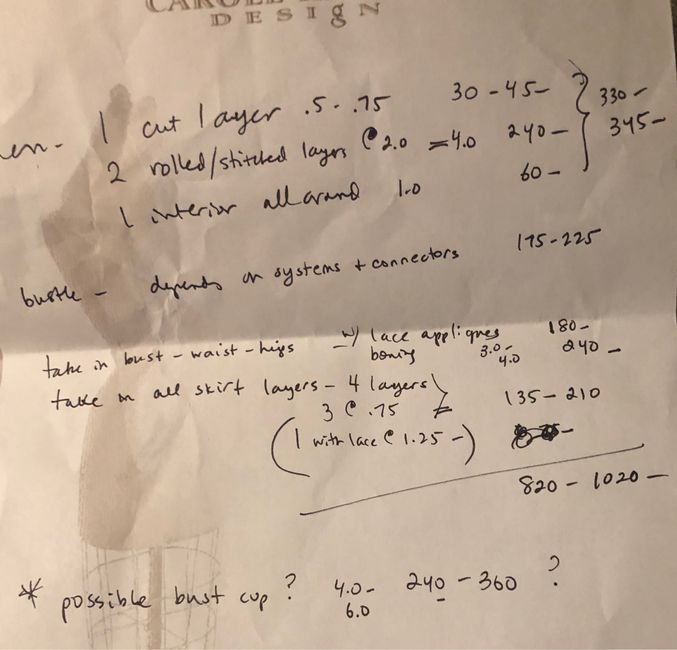 DESIGN
1 cut layer .5 - .75 30 - 45 -
2 rolled/stitched layers @ 2.0 = 4.0 240 -
1 interior all around 1.0 60 -
330 -
345 -
bustle - depends on systems + connectors 175-225
take in bust - waist - hips w/ lace appliques 180 -
boning 3.0 - 4.0 240 -
take in all skirt layers - 4 layers
3 @ .75 135 - 210
(1 with lace @ 1.25 -)
820 - 1020 -
* possible bust cup? 4.0 - 6.0 240 - 360 ?